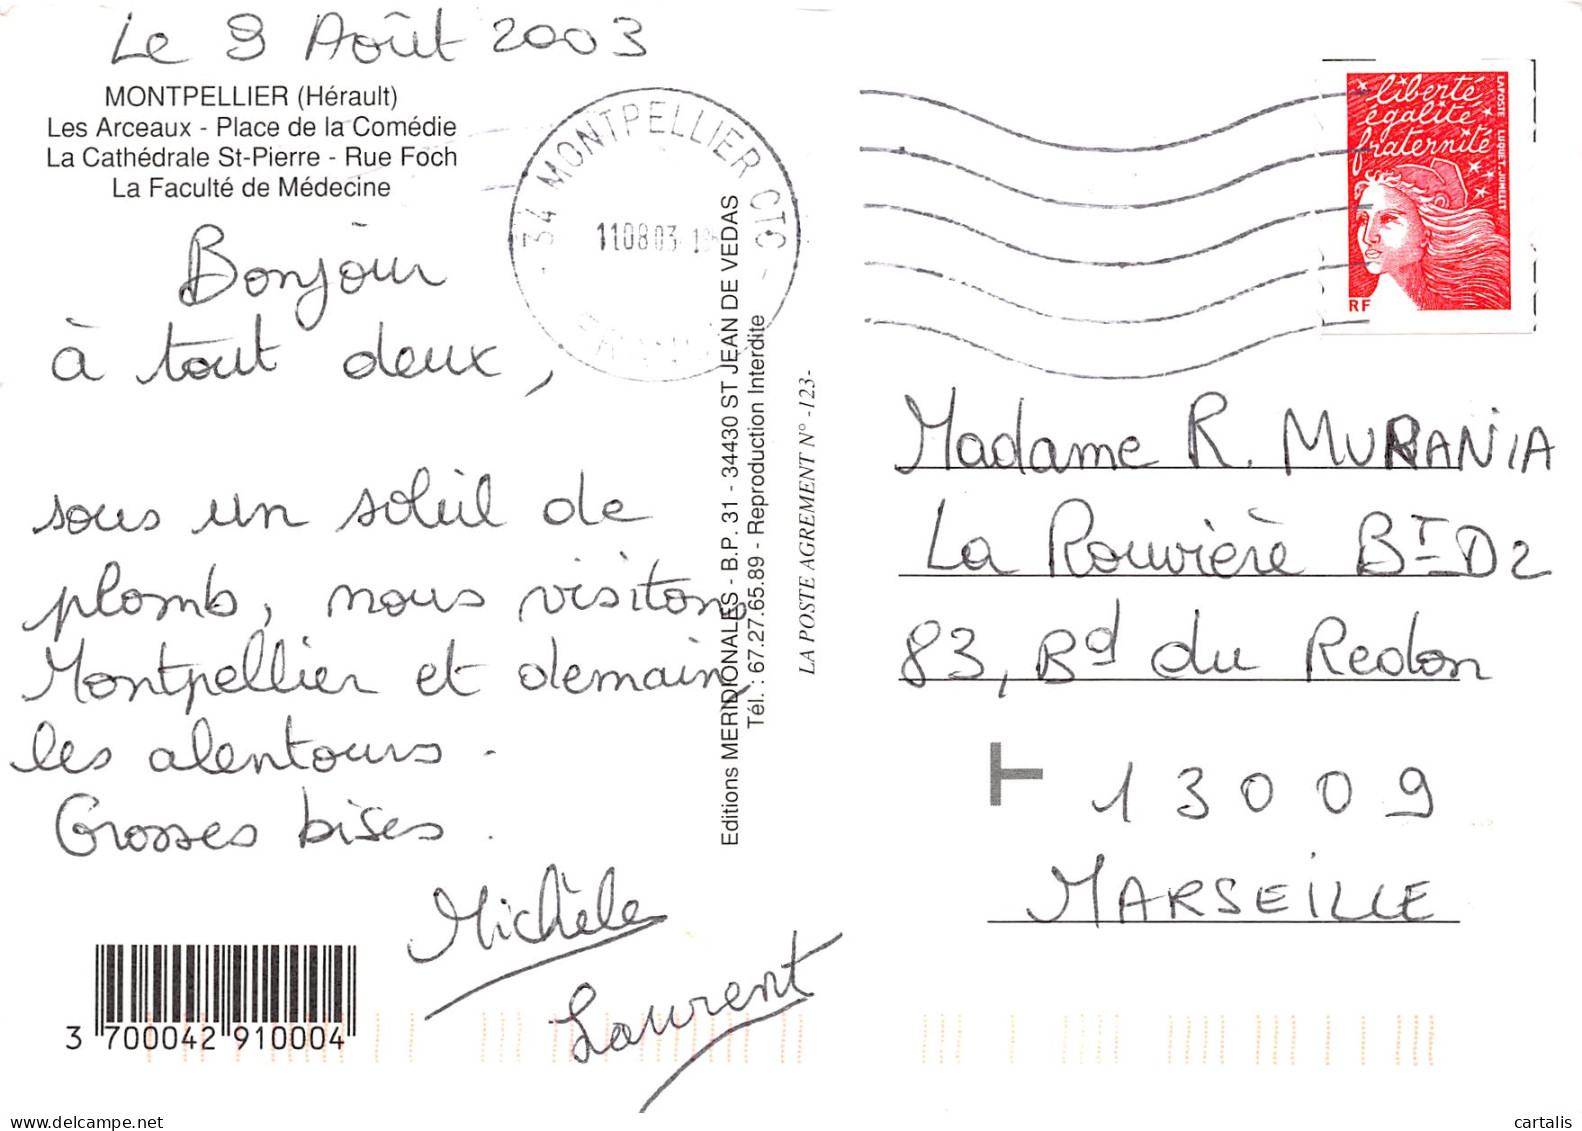 Le 9 Août 2003
MONTPELLIER (Hérault)
Les Arceaux - Place de la Comédie
La Cathédrale St-Pierre - Rue Foch
La Faculté de Médecine
Bonjour
à tout deux,
sous un soleil de
plomb, nous visitons
Montpellier et demain
les alentours.
Grosses bises.
Michèle
Laurent
3 700042 910004
34 MONTPELLIER CTC
110803
Editions MERIDIONALES - B.P. 31 - 34430 ST JEAN DE VEDAS
Tél. : 67.27.65.89 - Reproduction Interdite
LA POSTE AGREMENT N° -123-
liberté
égalité
fraternité
LAPOSTE LUQUET-JUMELET
RF
Madame R. MURANIA
La Rouvière Bt D2
83, Bd du Redon
T 13009
MARSEILLE
cartalis